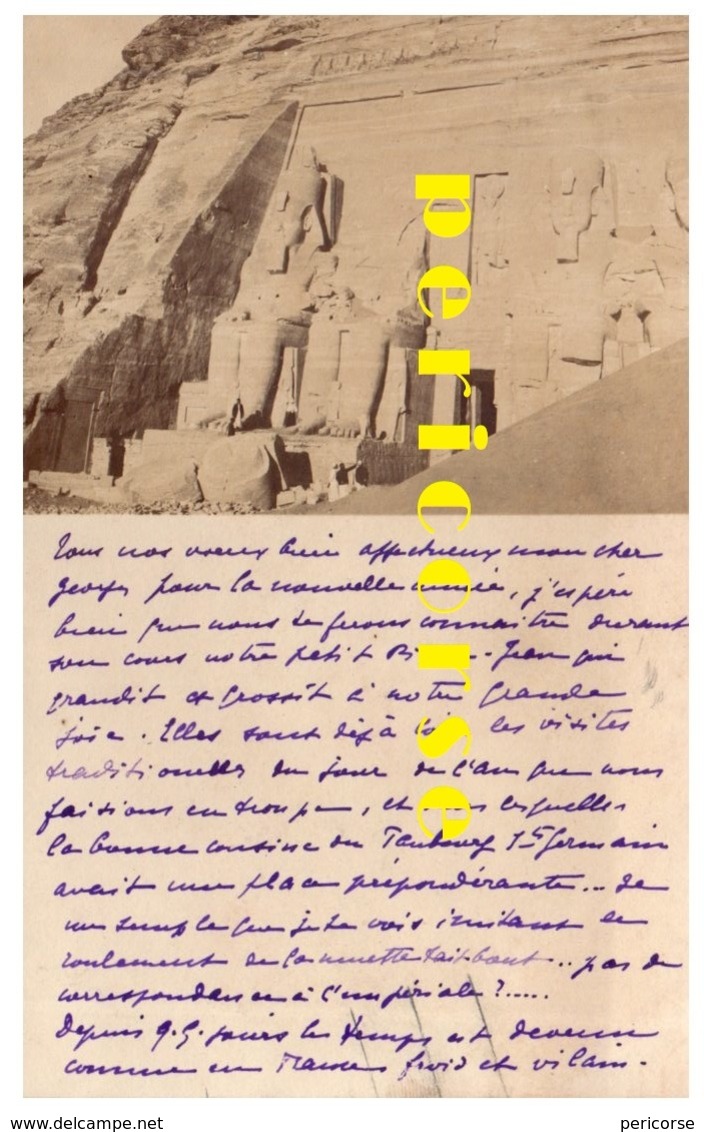 pericorse
Tous nos voeux bien affectueux mon cher
Georges pour la nouvelle année, j'espère
bien que nous te ferons connaitre durant
son cours notre petit Jean qui
grandit et grossit à notre grande
joie. Elles sont déjà les visites
traditionelles du jour de l'an que nous
faisions en troupe, et lesquelles
la bonne cousine du Faubourg St Germain
avait une place prépondérante... Je
me semble que je te vois imitant le
roulement de la .. pas de
correspondance à l'impériale ?.....
Depuis q.q. jours le temps est devenu
comme en France froid et vilain.
www.delcampe.net
pericorse